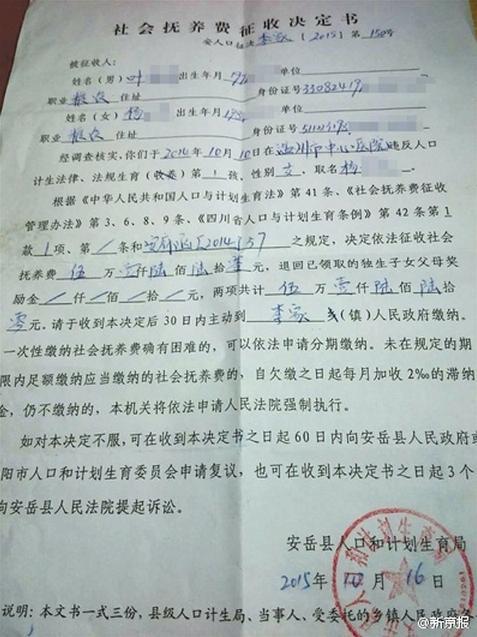 社会抚养费征收决定书
安人口征决李家〔2015〕第150号
被征收人:
姓名(男)叶 出生年月 单位
职业 务农 住址 身份证号33082419
姓名(女)杨 出生年月 单位
职业 务农 住址 身份证号
经调查核实,你们于2014年10月10日在 市中心医院违反人口
计生法律、法规生育(收养)第1孩、性别女、取名杨
根据《中华人民共和国人口与计划生育法》第41条、《社会抚养费征收
管理办法》第3、6、8、9条、《四川省人口与计划生育条例》第42条第1
款1项、第/条和 [2014]37 之规定,决定依法征收社会
抚养费伍万壹仟陆佰陆拾零元,退回已领取的独生子女父母奖
励金/仟/佰/拾/元,两项共计伍万壹仟陆佰陆拾
零元。请于收到本决定后30日内主动到李家 (镇)人民政府缴纳。
一次性缴纳社会抚养费确有困难的,可以依法申请分期缴纳。未在规定的期
限内足额缴纳应当缴纳的社会抚养费的,自欠缴之日起每月加收2‰的滞纳
金,仍不缴纳的,本机关将依法申请人民法院强制执行。
如对本决定不服,可在收到本决定书之日起60日内向安岳县人民政府或
阳市人口和计划生育委员会申请复议,也可在收到本决定书之日起3个
向安岳县人民法院提起诉讼。
安岳县人口和计划生育局
2015年 月16日
说明:本文书一式三份,县级人口计生局、当事人、受委托的乡镇人民政府各
@新京报